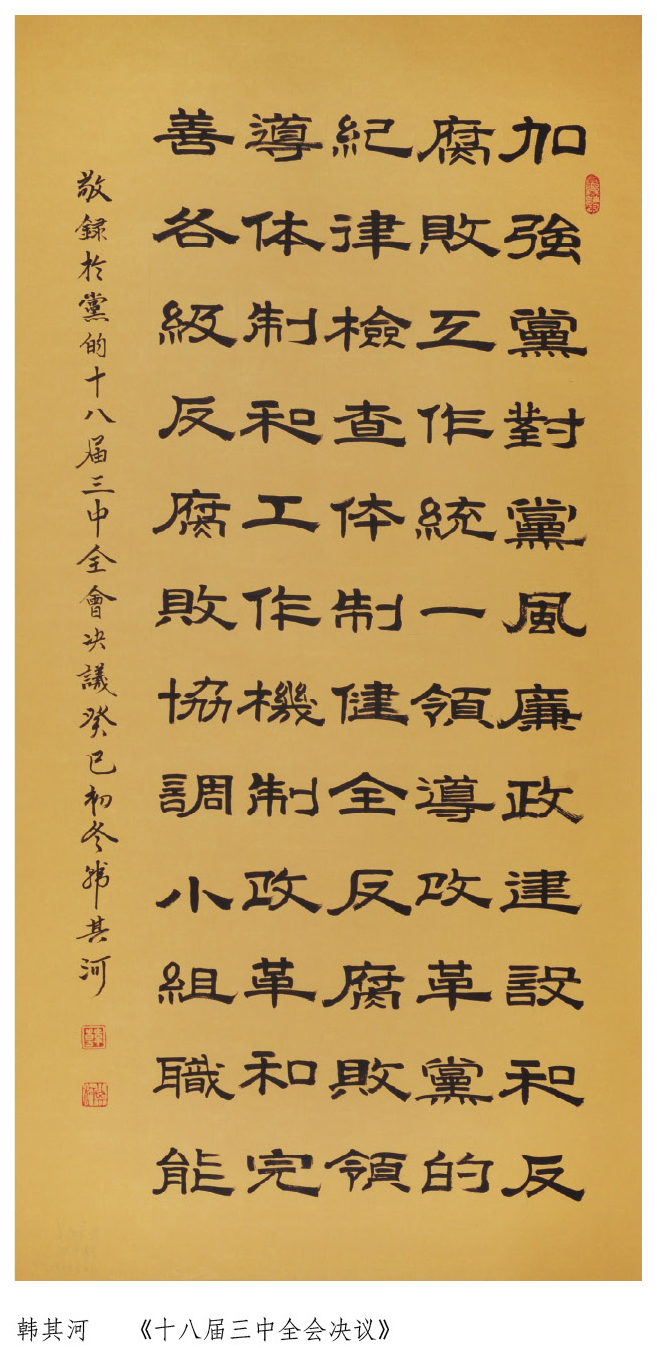 加強黨對黨風廉政建設和反
腐敗工作統一領導改革黨的
紀律檢查体制健全反腐敗領
導体制和工作機制改革和完
善各級反腐敗協調小組職能
敬録於黨的十八届三中全會决議癸巳初冬韩其河
韩其河　　《十八届三中全会决议》